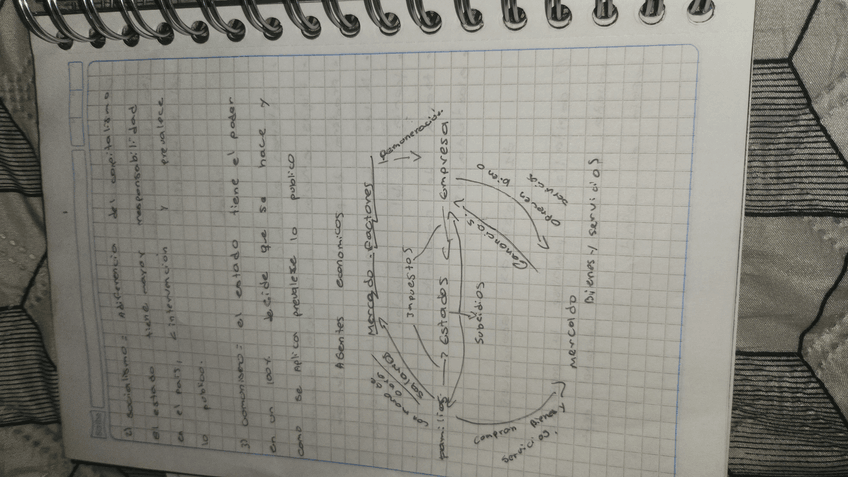 2) Socialismo: Adiferencia del capitalizmo
el estado tiene mayor responsabilidad
en el país, intervencion y prevalece
lo publico.
3) Comonismo: el estado tiene el poder
en un 100% decide que se hace y
como se aplica prevaleze lo publico
Agentes economicos
Mercado factores
Remuneración
mano de obra
salario
Impuestos
familias Estados Empresa
Subsidios
Ganancias
Ofrecen bien o
servicios
Compran Bienes y
servicios
Mercado
Bienes y servicios